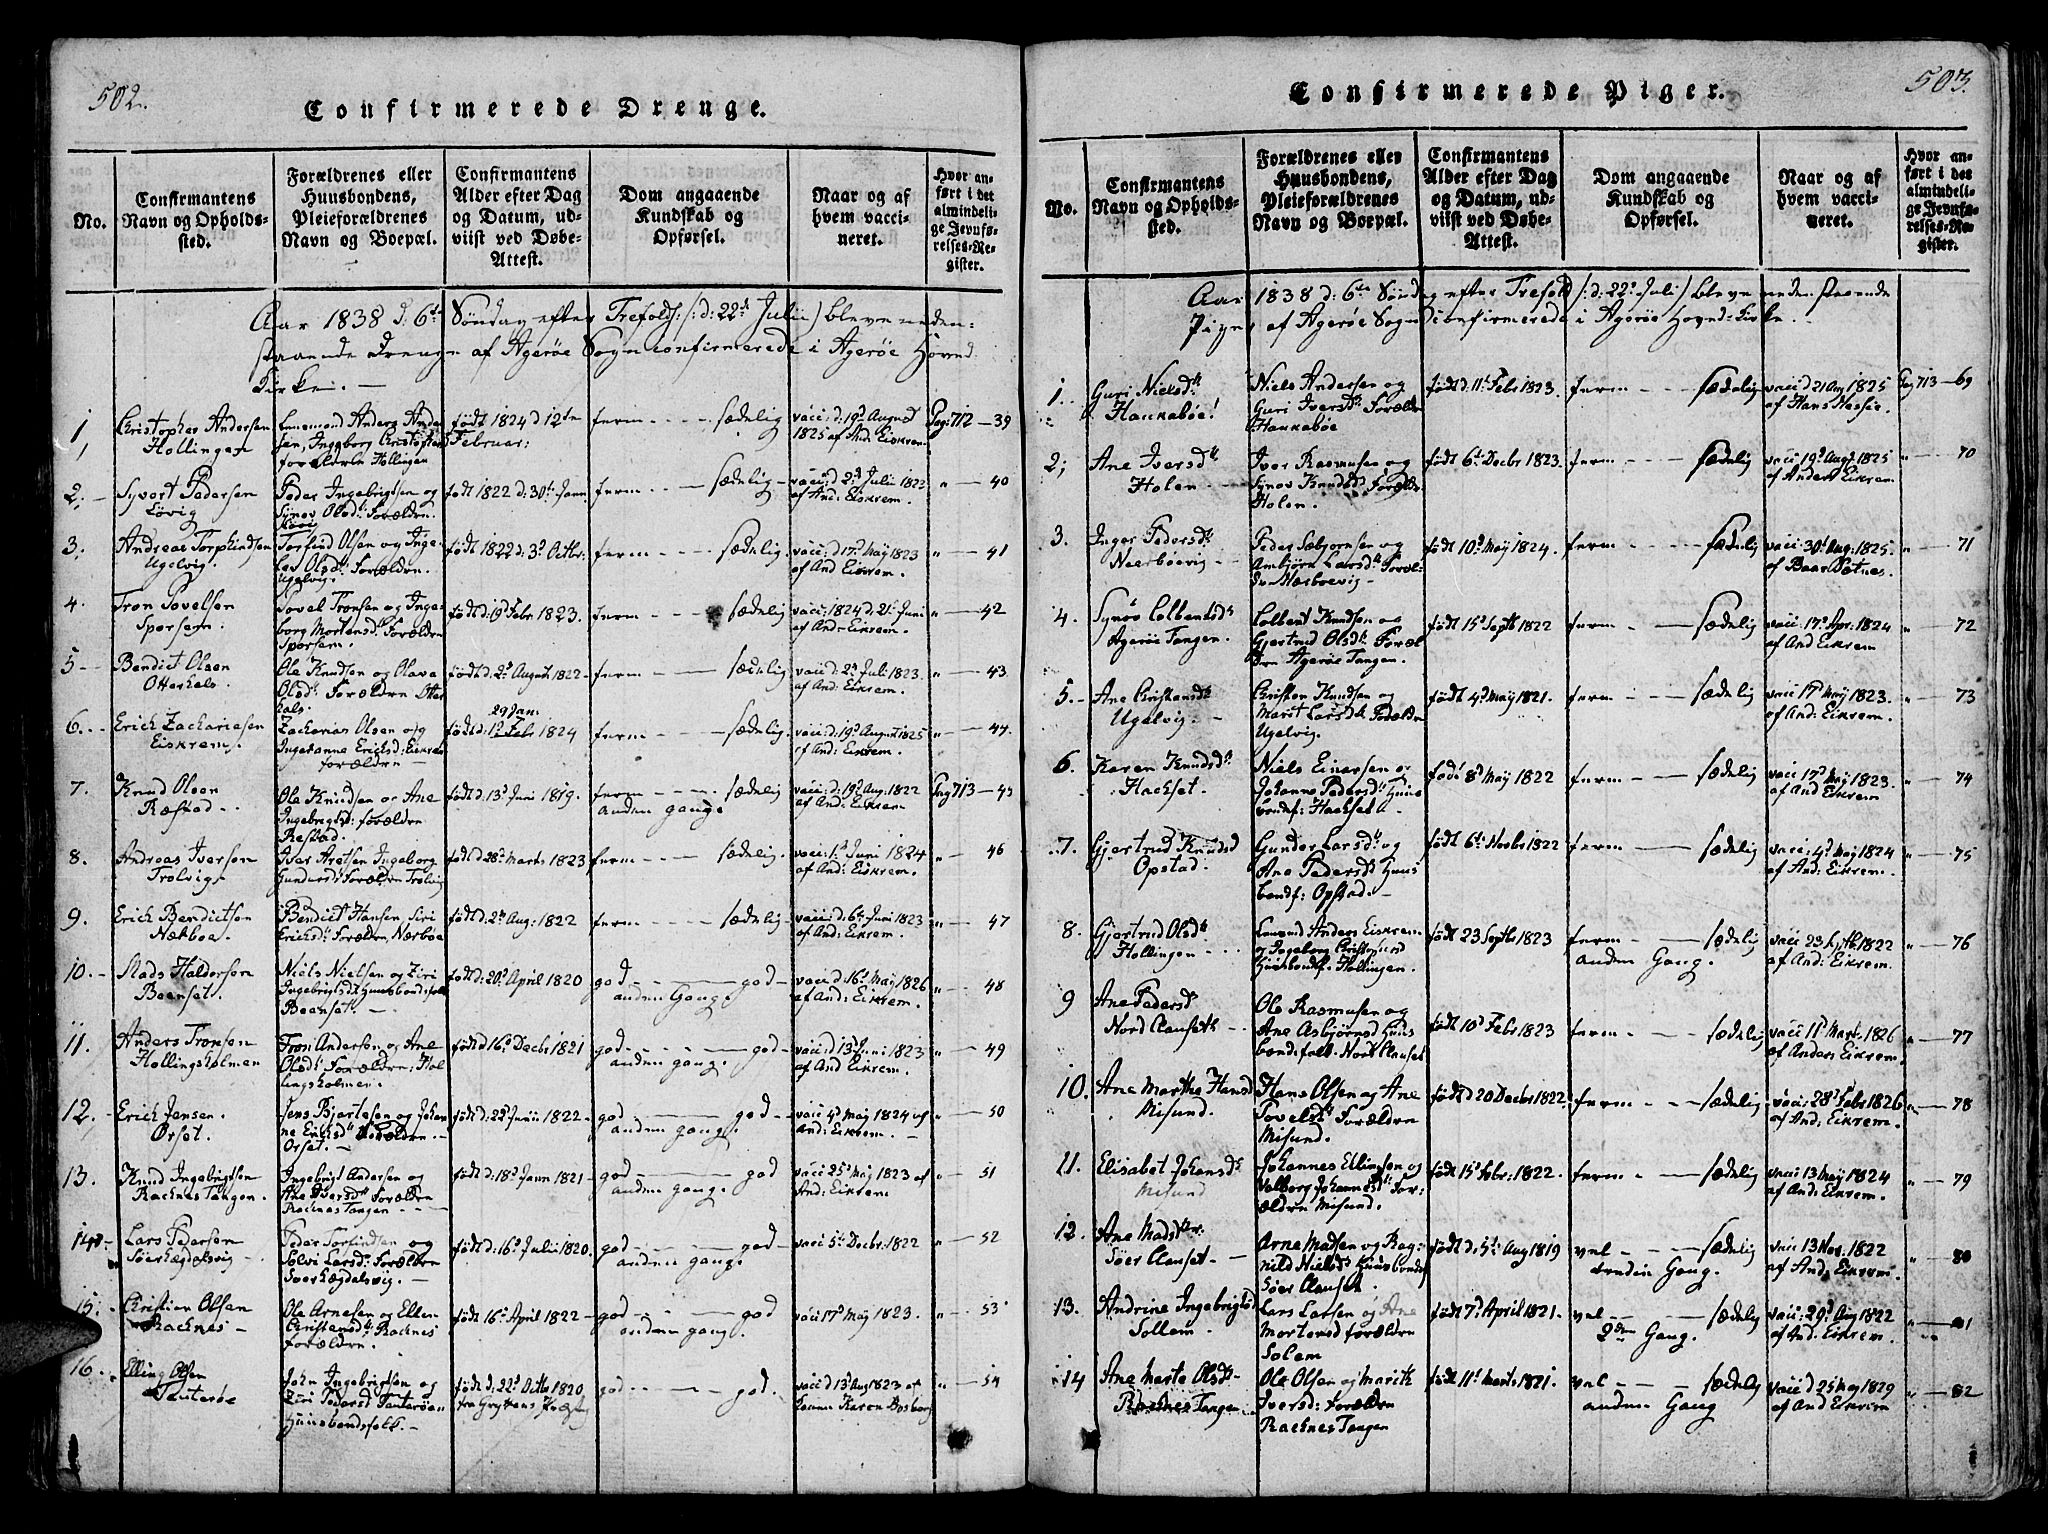 502.
Confirmerede Drenge.
No.
Confirmantens
Navn og Opholds-
sted.
Forældrenes eller
Huusbondens,
Pleieforældrenes
Navn og Boepæl.
Confirmantens
Alder efter Dag
og Datum, ud-
viist ved Døbe-
Attest.
Dom angaaende
Kundskab og
Opførsel.
Naar og af
hvem vacci-
neret.
Hvor an-
ført i det
almindeli-
ge Jevnfø-
relses-Re-
gister.
Aar 1838 d. 6te Søndag efter Trefold: /:d: 22de Julii/ bleve neden-
staaende Drenge af Agerøe Sogn confirmerede i Agerøe Hoved
Kirke. —
1, Christopher Andersen
Hollingen
Anders Ander
sen, Ingeborg Christofters
forældre Hollingen
født 1824 d 12te
Februar:
ferm - - - sædelig
vacc: d: 19d August
1825 af And: Eiskrem
Pag: 712 — 39
2. - Syvert Pedersen
Løvig
Peder Ingebrigtsen og
Synov Olsd: Forældre.
Løvig
født 1822 d: 30te Janr.
ferm - - - sædelig -
vacc: d: 2d Julii 1823
af And: Eiskrem.
" - 40
3. Andreas Torphindsen
Ugelvig.
Torfind Olsen og Inge-
Olsd: Forældre.
Ugelvig.
født 1822 d: 3d Octbr:
ferm - - - sædelig.
vacc: d: 17d May 1823
af And Eiskrem.
" — 41
4. Tron Sovelsen
Sporsem.
Sovel Tronsen og Inge-
borg Mortensd: Forældre
Sporsem.
født d: 19d Febr 1823.
ferm - - - sædelig
vacc: 1824 d. 21d Juni
af And: Eiskrem
" — 42
5 - - Bendict Olsen
Otterhals.
Ole Knudsen og Olava
Olsd: Forældre Otter
hals.
født d: 2d August 1822 -
ferm - - - sædelig
vacc: d: 2d Juli 1823.
af And: Eiskrem.
" — 43
6. - - Erich Zachariesen
Eiskrem.
Zacharias Olsen og
Ingebanne Ericksd: Eiskrem
forældre —
29 Jan:
født d: 12 Febr 1824
ferm - - - sædelig.
vacc: d: 19d August 1825
af And: Eiskrem.
" — 44.
7. Knud Olsen
Ræstad - .
Ole Knudsen og Ane
Ingebrigtsd: forældre
Restad.
født d: 13d Juni 1819.
ferm - - - sædelig
anden gang.
vacc: d: 19d Aug: 1822
af And: Eikrem
Pag 713 — 45
8. Andreas Iversen
Trolvig.
Iver Aretsen Ingeborg
Gundersd: Forældre Trolvig
født d: 28d Marts 1823
ferm - - - sædelig.
vacc: 1d Juni 1824
af And: Eiskrem.
" — 46
9. Erich Bendictsen
Nærboe.
Bendict Hansen, Siri
Ericksd: Forældre, Nærbøe
født d: 2d Aug: 1822
ferm - - - sædelig.
vacc: d: 6te Juni 1823
af And: Eikrem.
" — 47
10. - Mads Haldorsen
Boensæt.
Niels Nielsen og Ziri
Ingebrigtsd: Huusbondsfolk
Beenset. —
født d: 20d April 1820
god - - - god -
anden Gang.
vacc d 16d May 1826
af And: Eikrem.
" — 48
11. Anders Tronsen
Hollingsholmen
Tron Andersen og Ane
Olsd: Forældre: Hol
lingsholmen.
født d 16d Decbr 1821
god - - - god -
anden gang.
vacc d 13d Juni 1823
af And Eikrem.
" — 49
12. - Erich Jensen.
Orset.
Jens Bjertesen og Johan
ne Ericksd: Forældre. -
Orset. —
født d: 22d Junii 1822 -
god - - - god -
anden gang.
vacc: 4d May 1824 af
And: Eikrem. —
" — 50
13. Knud Ingebrigtsen
Raknes Tangen.
Ingebrigt Andersen og
Ane Iversd: Forældre
Raknes Tangen - - -
født d: 18d Janr 1821
god - - - god
anden gang.
vacc 25d May 1823 af
And: Eikrem
" — 51
14. - Lars Pedersen
Søerhægdalsvig - .
Peder Torfindsen og
Solvi Larsd: Forældre
Sverhægdalsvig. —
født d. 16d Julii 1820.
god - - - god -
anden gang.
vacc 5te Decbr: 1822
" — 52
15. - Christian Olsen
Racknes -
Ole Arnesen og Ellen
Christensd: Racknes
forældre.
født 16d April 1822 -
god - - - god
anden gang.
vacc 17d May 1823.
" — 53
16. . Elling Olsen
Tauterøe
John Ingebrigtsen og
Ziri Pedersd Tauterøe
Huusbondsfolk. -
født d. 22d Octbr 1820
god - - - god.
vacc d 13d Aug 1823 af
" — 54
503.
Confirmerede Piger.
No.
Confirmantens
Navn og Opholds-
sted.
Forældrenes eller
Huusbondens,
Pleieforældrenes
Navn og Boepæl.
Confirmantens
Alder efter Dag
og Datum, ud-
viist ved Døbe-
Attest.
Dom angaaende
Kundskab og
Opførsel.
Naar og af
hvem vacci-
neret.
Hvor an-
ført i det
almindeli-
ge Jevnfø-
relses-Re-
gister.
Aar 1838 d. 6te Søndag efter Trefold /:d: 22d Juli/ bleve nedenstaaende
Piger af Agerøe Sogn confirmerede i Agerøe Hoved-Kirke. -
1. Guri Nielsd:
Haukabøe!
Niels Andersen og
Guri Iversd: Forældre
Haukabøe
født d: 11t Febr 1823.
ferm - - - sædelig
vacc d 21 Aug 1825
af Hans Nessie.
Pag 713 - 69
2; Ane Iversd:
Holen - -
Iver Rasmusen og
Synov Knudsd: Forældre
Holen.
født 6te Decbr 1823.
ferm - - - sædelig
vacc 19d Augt 1825
af Anders Eikrem
" — 70
3. Inger Pedersd:
Neerboevig —
Peder Sæbjørnsen og
Ambjør Larsd: Foræl-
dre Nærboevig -
født 10d May 1824.
ferm - - - sædelig
vacc: 30d Aug: 1825.
af Baar Sætnes.
" — 71
4. Synøv Colbensd:
Agerøe Tangen.
Colbent Knudsen og
Gjertrud Olsd: Foræl
dre Agerøe Tangen.
født 15d Septb 1822
ferm - - - sædelig
vacc: 17d Apr: 1824
af And Eikrem
" — 72
5. - Ane Christensd:
Ugelvig. -
Christen Knudsen og
Marit Larsd: Forældre
Ugelvig.
født 4d May 1821.
ferm - - - sædelig
vacc 17d May 1823.
af And: Eikrem.
" — 73
6. Karen Knudsd:
Hackset.
Niels Einersen og
Johanne Pedersd: Huus
bondf: Hackset.
født 8d May 1822
ferm - - - sædelig
vacc 17d May 1823.
af And Eikrem.
" — 74
7. Gjertrud Knudsd
Opstad.
Gunder Larsd: og
Ane Pedersd: Huus
bondf: Opstad. -
født 6te Novbr 1822
ferm - - - sædelig
vacc: 4d May 1824
af And: Eikrem.
" — 75
8. Gjertrud Olsd:
Hollingen - - -
Anders Eiskrem
og Ingeborg Christophersd
Huusbondsf. Hollingen.
født 23 Septb 1823
ferm - - - sædelig
anden Gang.
vacc: 23 Septb: 1822
af And: Eikrem.
" — 76
9 Ane Pedersd:
Nord Clauseth -
Ole Rasmusen og
Ane Asbjørnsd Huus
bondsfolk: Nord Clauset
født 10d Febr 1823
ferm - - - sædelig
vacc 11d Mart: 1826
af Anders Eikrem.
" — 77
10. Ane Marthe Hansd
Misund.
Hans Olsen og Ane
Sovelsd: Forældre
Misund.
født d 20 Decbr 1822.
ferm - - - sædelig
vacc: 28d Febr 1826
af And: Eikrem.
" — 78
11. Elisabet Johansd:
Misund
Johannes Ellingsen og
Valborg Johannesd: For:
ældre Misund.
født 15d Febr: 1822.
ferm - - - sædelig
vacc 13 May 1824
af And: Eikrem.
" — 79
12. Ane Madsdtr.
Søer Clauset -
Arne Madsen og Rag-
nild Nielsd: Huusbondsf
Søer Clauset.
født d. 5te Aug 1819
vel - - - sædelig
anden Gang.
vacc 13 Nov: 1822
af And, Eikrem.
" — 80
13. Andrine Ingebrigtsd
Sollem -
Lars Larsen og Ane
Mortensd forældre
Solem
født 7d April 1821.
vel - - - sædelig
2den Gang.
vacc: 29d Aug 1822
af And: Eikrem.
" — 81
14 Ane Marta Olsd:
Racknes Tangen
Ole Olsen og Marith
Iversd: Forældre
Racknes Tangen
født 11d Marts 1821.
vel - - - sædelig
anden Gang
vacc d 25 May 1829
af And Eikrem
" — 82